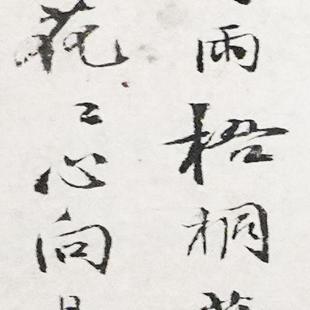 雨梧桐
花〻心向